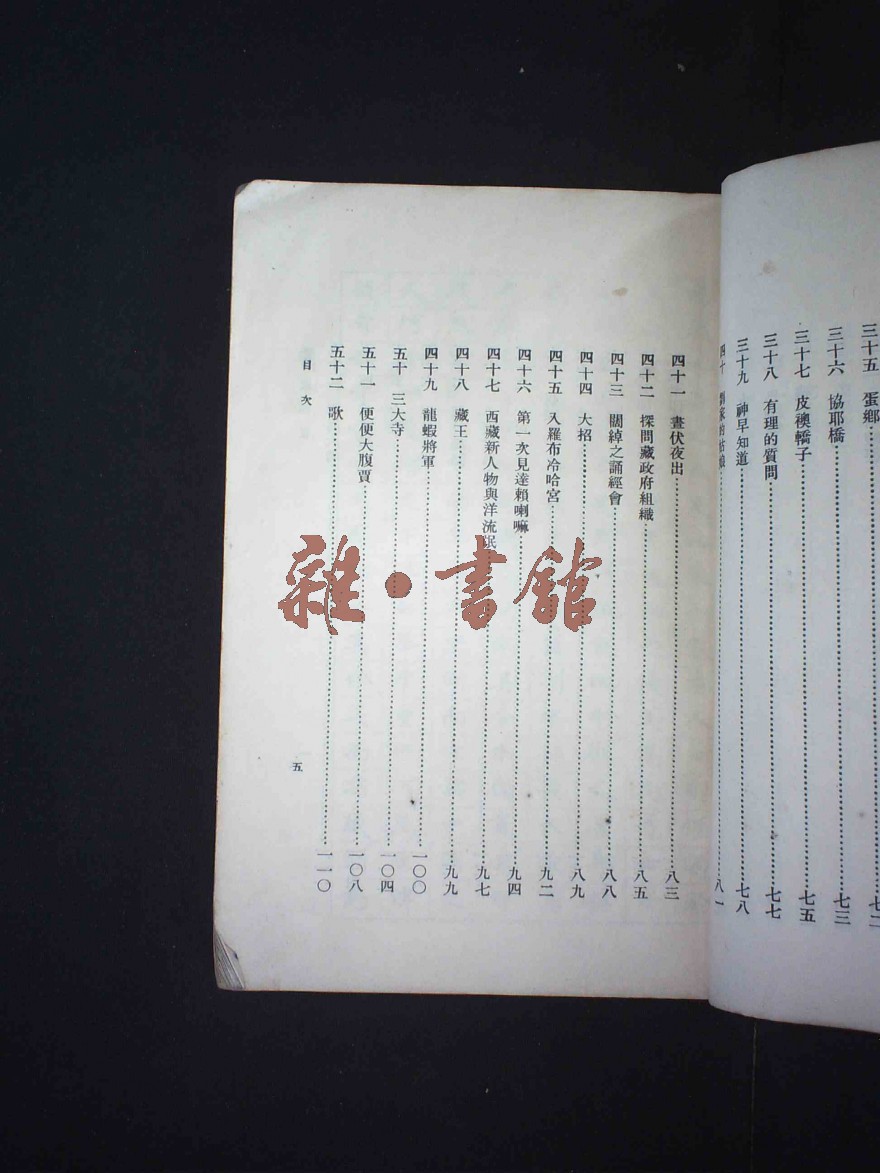 三十五 蛋鄉 七二
三十六 協耶橋 七三
三十七 皮襖轎子 七五
三十八 有理的質問 七七
三十九 神早知道 七八
四十 的姑娘 八一
四十一 晝伏夜出 八三
四十二 探問藏政府組織 八五
四十三 關綽之誦經會 八八
四十四 大招 八九
四十五 入羅布冷哈宮 九二
四十六 第一次見達賴喇嘛 九四
四十七 西藏新人物與洋流氓 九七
四十八 藏王 九九
四十九 龍蝦將軍 一〇〇
五十 三大寺 一〇四
五十一 便便大腹賈 一〇八
五十二 歌 一一〇
目次
五
雜·書館